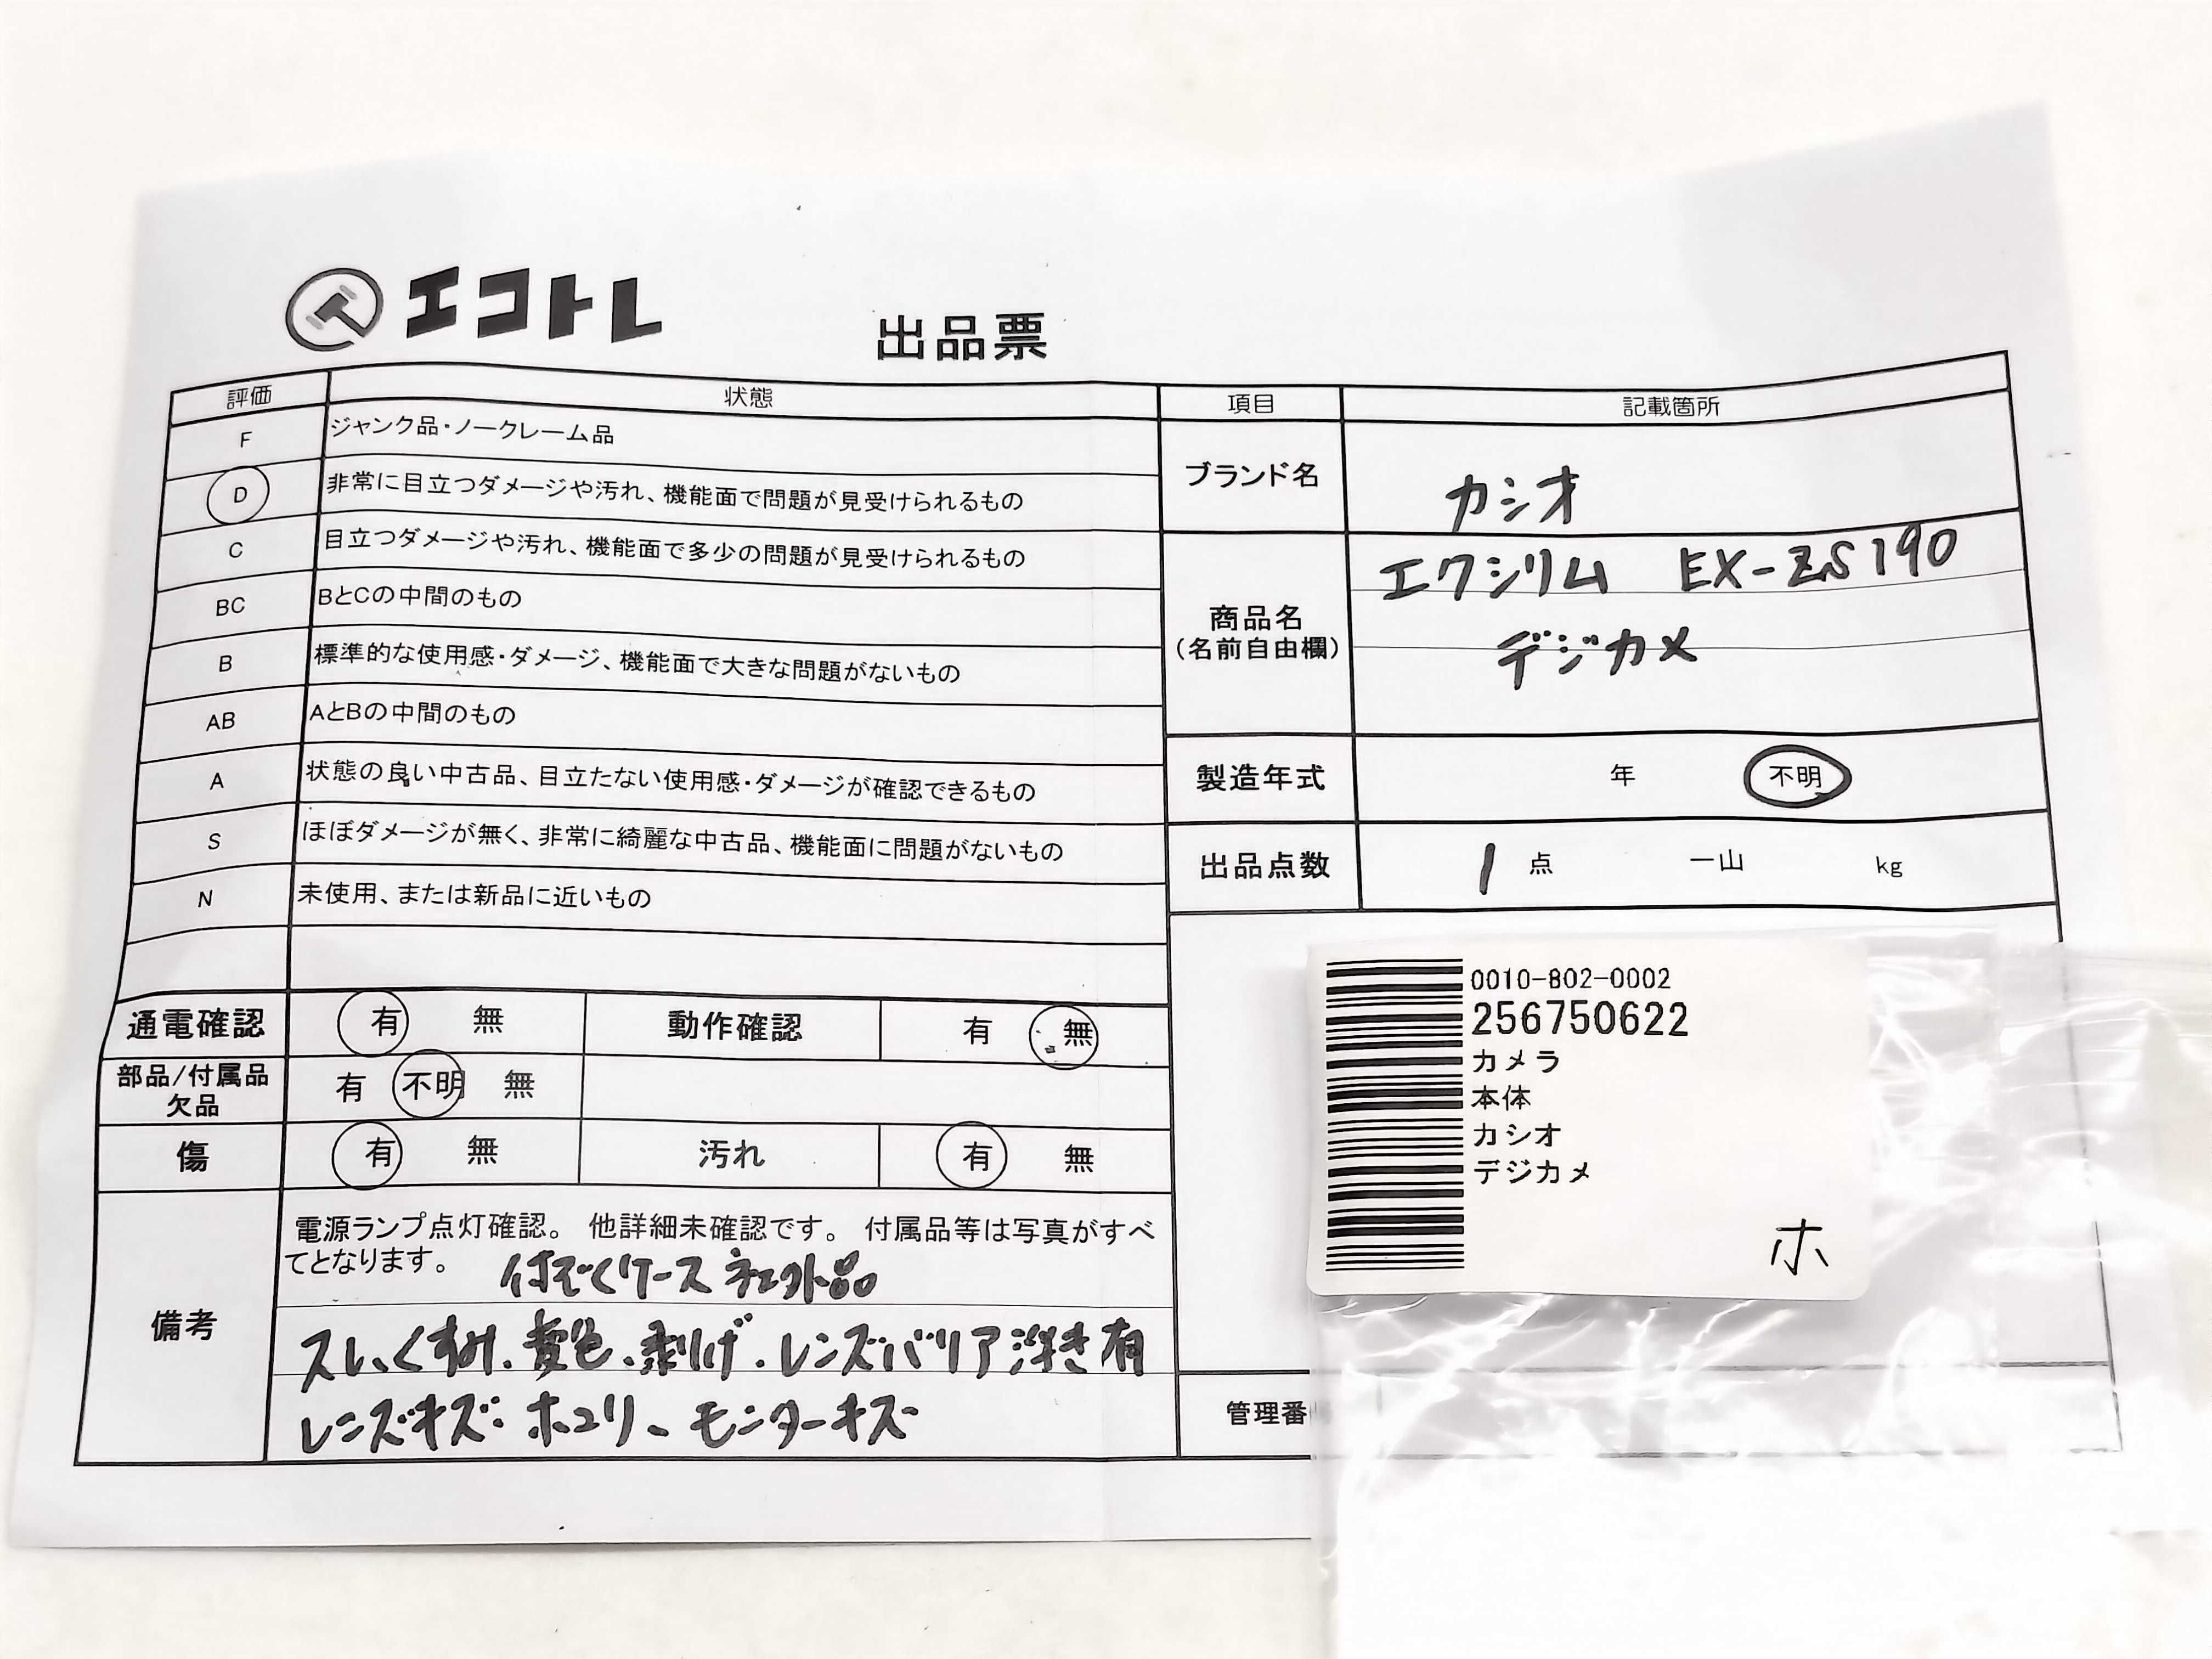 エコトレ
出品票
評価 状態
F ジャンク品・ノークレーム品
D 非常に目立つダメージや汚れ、機能面で問題が見受けられるもの
C 目立つダメージや汚れ、機能面で多少の問題が見受けられるもの
BC BとCの中間のもの
B 標準的な使用感・ダメージ、機能面で大きな問題がないもの
AB AとBの中間のもの
A 状態の良い中古品、目立たない使用感・ダメージが確認できるもの
S ほぼダメージが無く、非常に綺麗な中古品、機能面に問題がないもの
N 未使用、または新品に近いもの
通電確認 有 無 動作確認 有 無
部品/付属品
欠品
有 不明 無
傷 有 無 汚れ 有 無
備考
電源ランプ点灯確認。 他詳細未確認です。 付属品等は写真がすべ
てとなります。 付ぞくケース
スレ、くすみ、変色、剥げ、レンズバリア浮き有
レンズキズ・ホコリ、モニターキズ
項目 記載箇所
ブランド名 カシオ
商品名
(名前自由欄)
エクシリム EX-ZS190
デジカメ
製造年式 年 不明
出品点数 1 点 一山 kg
管理番
0010-802-0002
256750622
カメラ
本体
カシオ
デジカメ
ホ